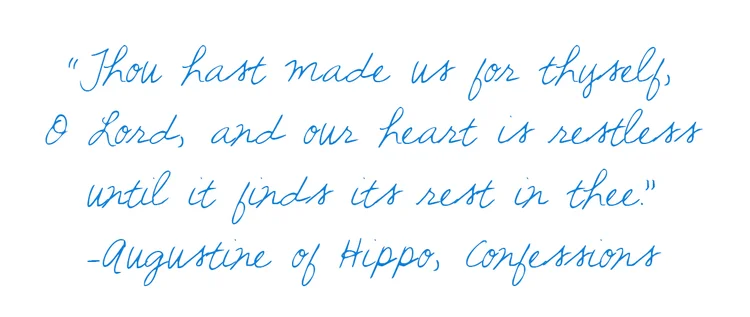 "Thou hast made us for thyself,
O Lord, and our heart is restless
until it finds its rest in thee."
-Augustine of Hippo, Confessions